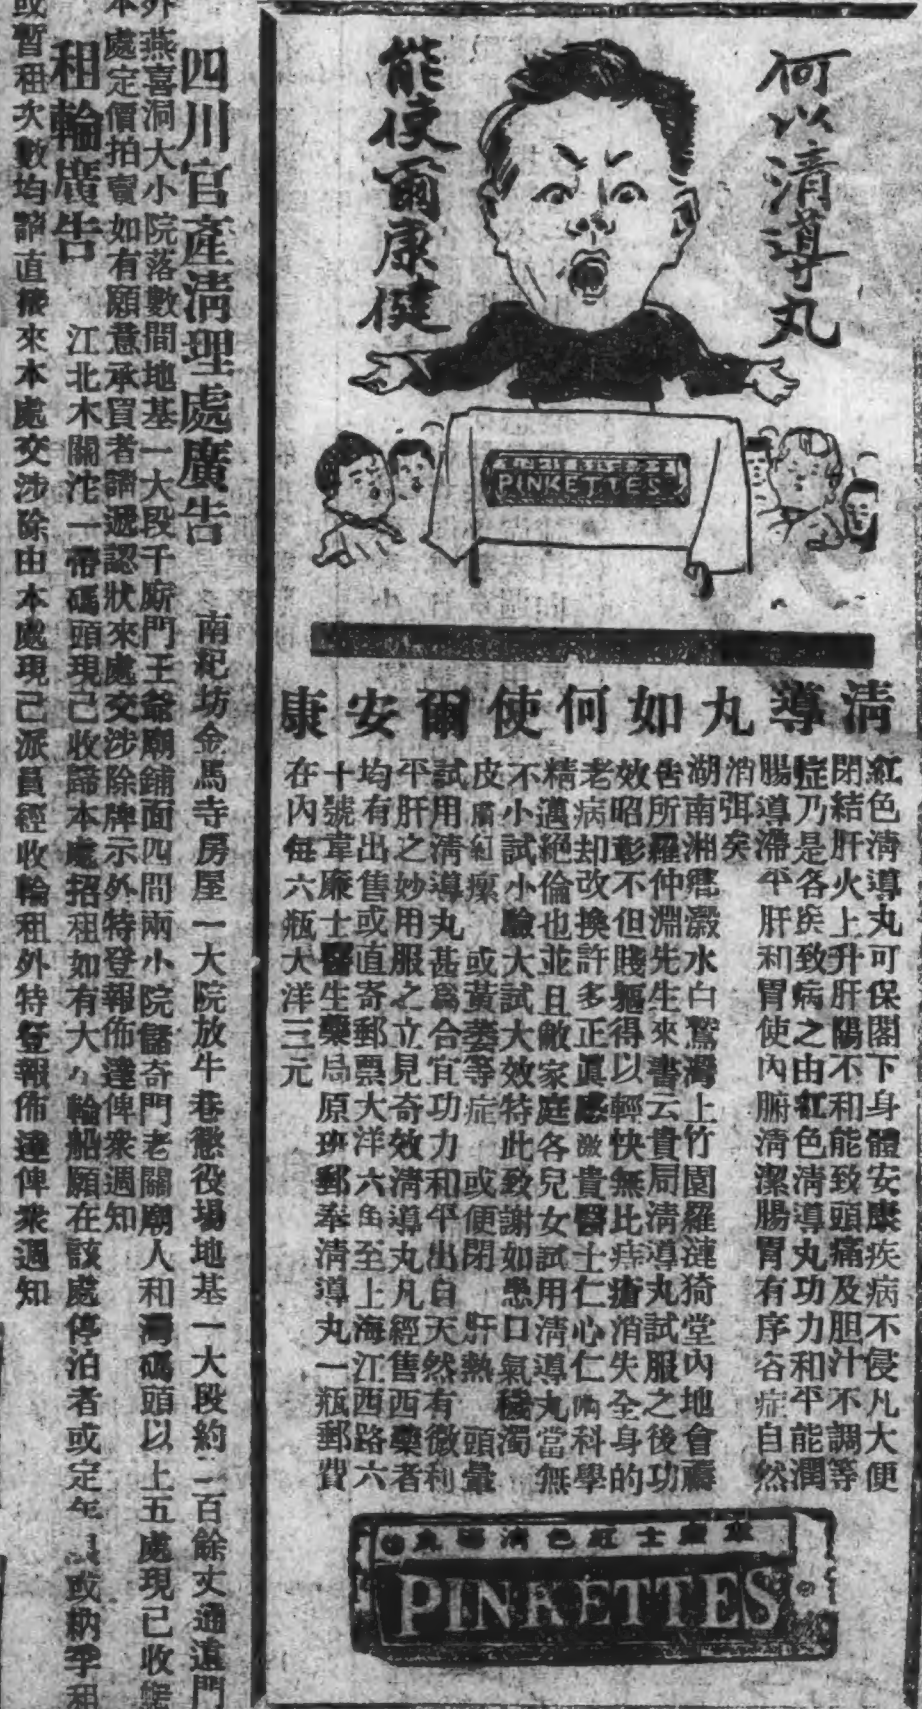 何以清導丸
能使爾康健
PINKETTES
清導丸如何使爾安康
紅色淸導丸可保閣下身體安康疾病不侵凡大便
閉結肝火上升肝陽不和能致頭痛及胆汁不調等
症乃是各疾致病之由紅色淸導丸功力和平能潤
腸導滯平肝和胃使內腑淸潔腸胃有序各症自然
消弭矣
湖南湘水白鷺灣上竹園羅漣猗堂內地會
告所羅仲淵先生來書云貴局淸導丸試服之後功
效昭彰不但賤軀得以輕快無比痔瘡消失全身的
老病却改換許多正眞感激貴醫士仁心仁術科學
精邁絕倫也並且敝家庭各兒女試用淸導丸當無
不小試小驗大試大效特此致謝如患口氣穢濁
皮膚紅瘰 或黃萎等症 或便閉 肝熱 頭暈
試用淸導丸甚爲合宜功力和平出自天然有微利
平肝之妙用服之立見奇效淸導丸凡經售西藥者
均有出售或直寄郵票大洋六角至上海江西路六
十號韋廉士醫生藥局原班郵奉淸導丸一瓶郵費
在內每六瓶大洋三元
PINKETTES
四川官產淸理處廣告
南紀坊金馬寺房屋一大院放牛巷懲役場地基一大段約二百餘丈通遠門
外燕喜洞大小院落數間地基一大段千廝門王爺廟鋪面四間兩小院儲奇門老關廟人和灣碼頭以上五處現已收歸
本處定價拍賣如有願意承買者請遞認狀來處交涉除牌示外特登報佈達俾衆週知
租輪廣告
江北木關沱一帶碼頭現已收歸本處招租如有大小輪船願在該處停泊者或定年或納季租
或暫租次數均請直接來本處交涉除由本處現已派員經收輪租外特登報佈達俾衆週知